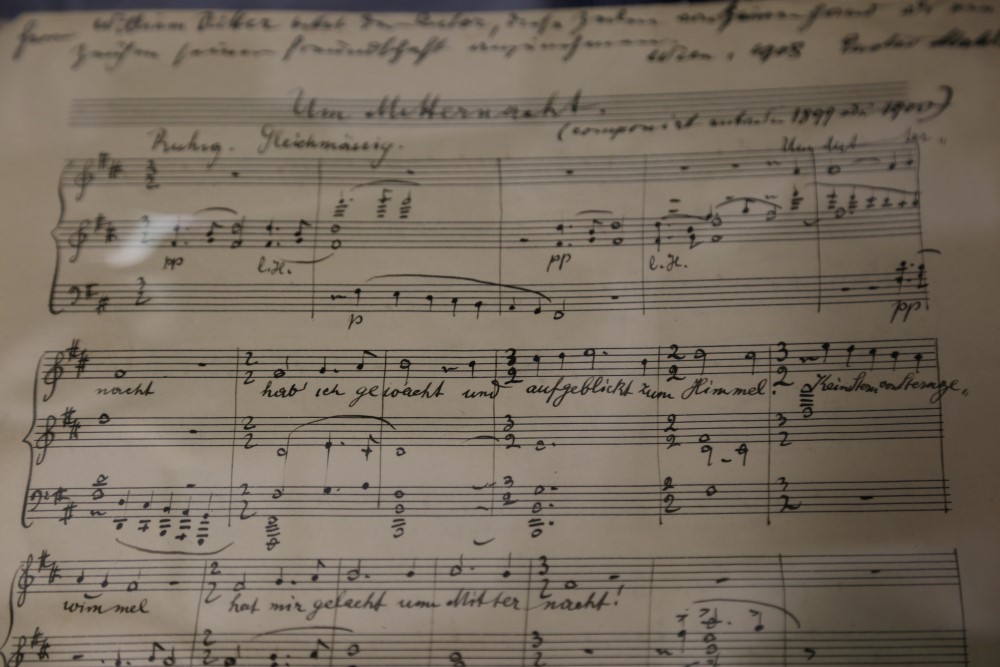 Herrn William Ritter
Zeichen seiner Freundschaft Wien, 1908 Gustav Mahl
Um Mitternacht.
(componirt 1899 oder 1900)
Ruhig. Gleichmässig.
Um Mit ter-
pp l.H. pp l.H.
p pp
nacht hab' ich gewacht und aufgeblickt zum Himmel. Kein Stern vom Sternge-
wimmel hat mir gelacht um Mitter nacht!